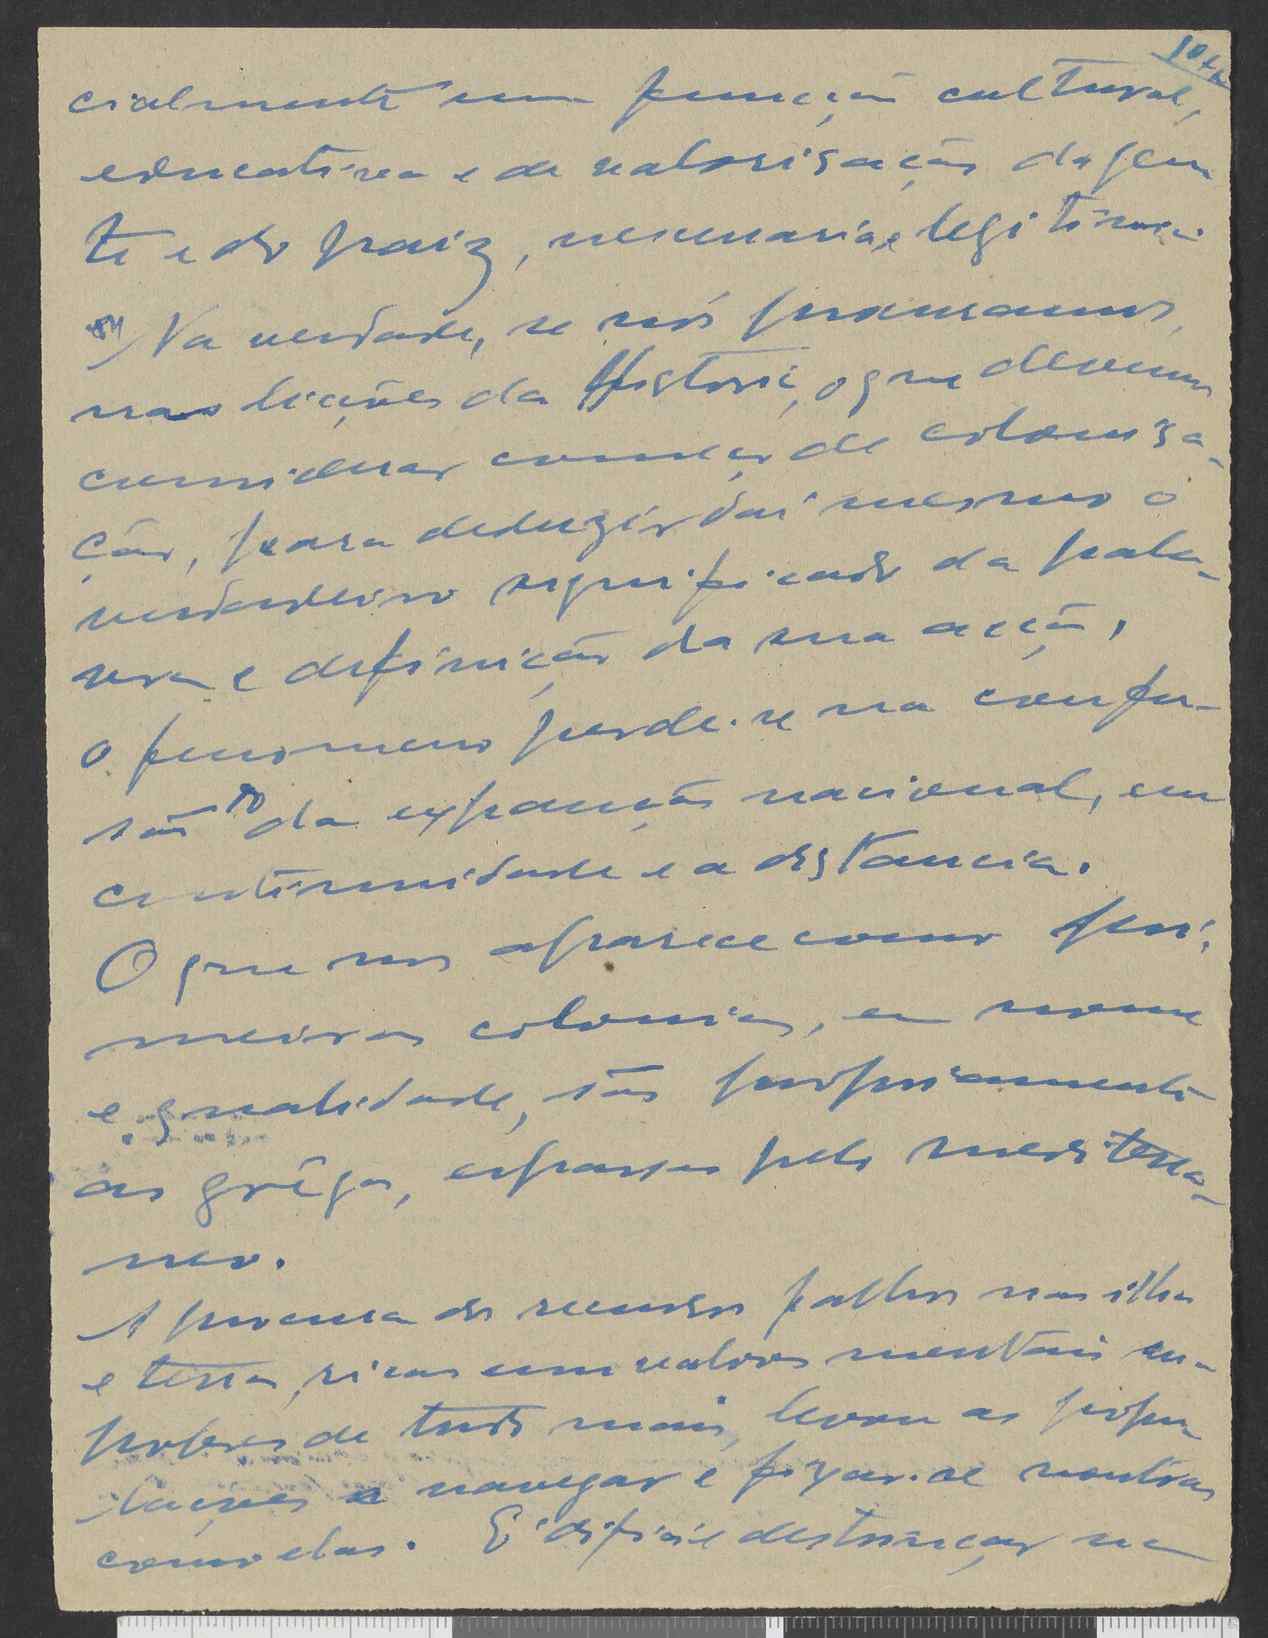 cialmente uma função cultural,
educativa e de valorisação da gen
te e do paiz, necessaria e legitima.
Na verdade, se nós procuramos,
nas lições da Historia, o que devemos
considerar começo de colonisa-
ção, para deduzir dai mesmo o
verdadeiro significado da pala-
vra e definição da sua acção,
o fenomeno perde-se na confu-
são da expansão nacional, em
continuidade e a distancia.
O que nos aparece como pri-
meiras colonias, em nome
e qualidade, são propriamente
as grêgas, esparsas pelo mediterra-
neo.
A procura de recursos falhos nas ilhas
e terras, ricas em valores mentais e
pobres de tudo mais, levou as popu
lações a navegar e fixar-se noutras
como elas. E' dificil destrinçar se